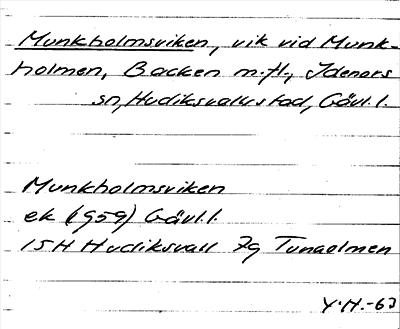 Munkholmsviken, vik vid Munk-
holmen, Backen m.fl., Idenors
sn, Hudiksvalls stad, Gävl.l.
Munkholmsviken
ek (1959) Gävl.l.
15H Hudiksvall 7g Tunaolmen
Y.H.-63